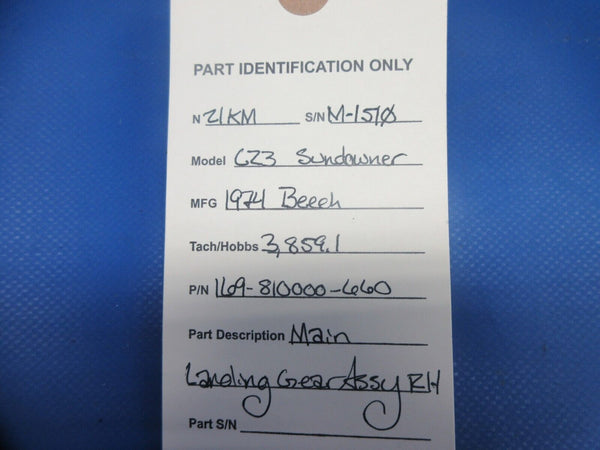 PART IDENTIFICATION ONLY
N 21KM S/N M-1510
Model C23 Sundowner
MFG 1974 Beech
Tach/Hobbs 3,859.1
P/N 169-810000-660
Part Description Main
Landing Gear Assy RH
Part S/N